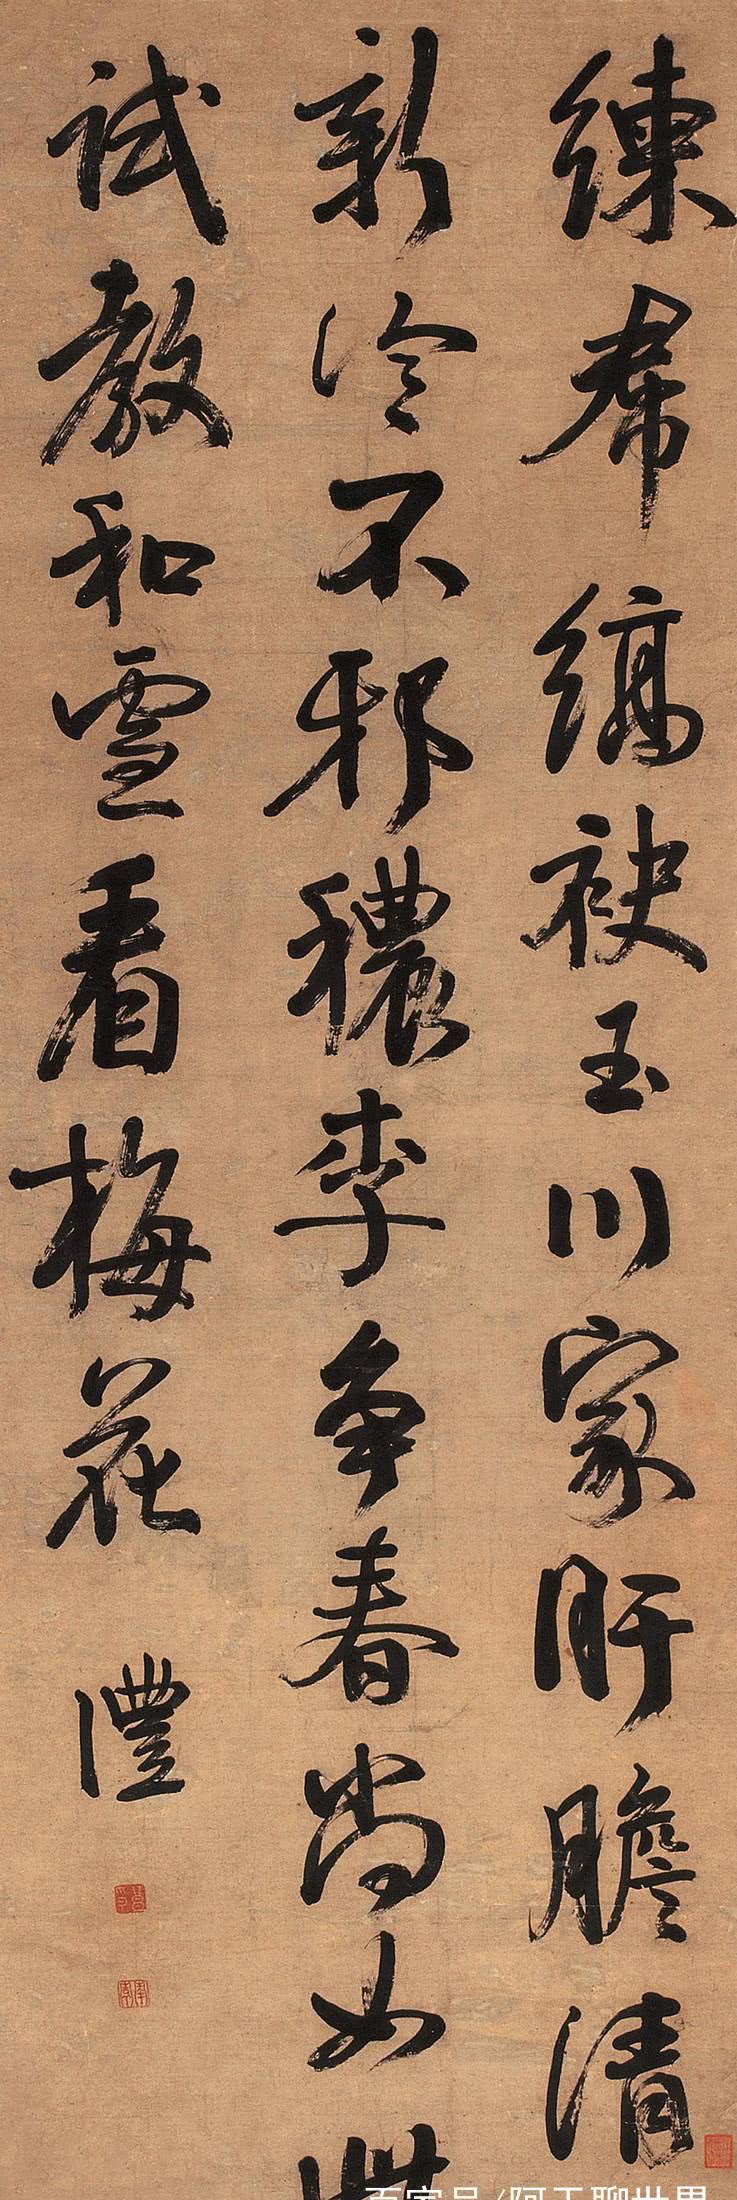 練帬縞袂玉川家肝膽清
新冷不邪穠李争春尚如
試教和雪看梅花
澧
百家号/阿王聊世界